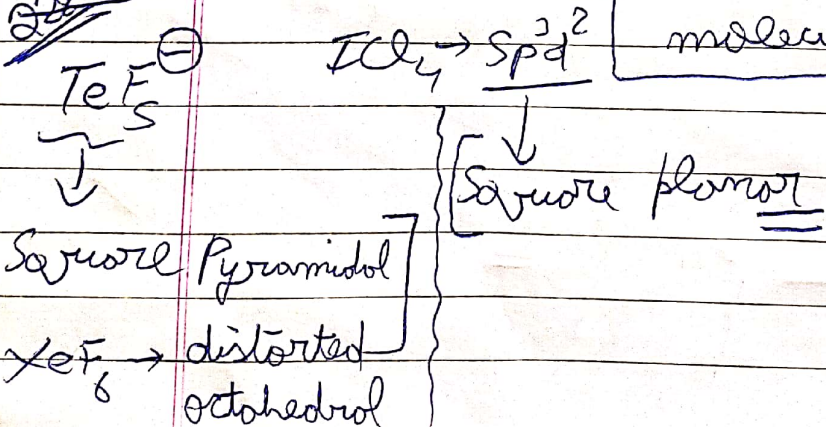 TeF₅⊖
Square Pyramidal
XeF₆ → distorted
octahedral
ICl₄ → sp³d²
Square planar